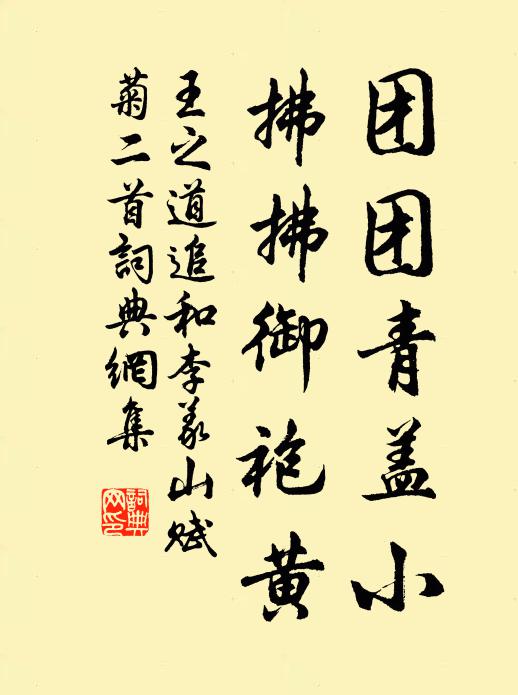 团团青盖小
拂拂御袍黄
王之道追和李义山赋
菊二首詞典網集
詞典
网印